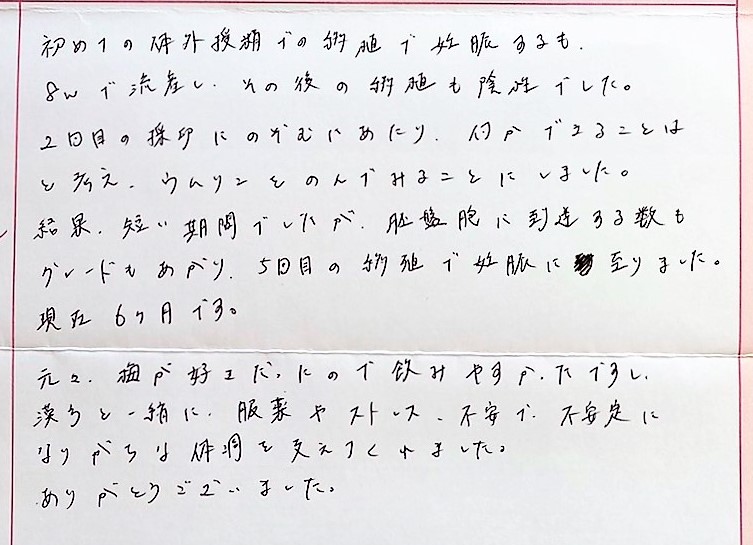 初めての体外授精での移植で妊娠するも、
8wで流産し、その後の移植も陰性でした。
2回目の採卵にのぞむにあたり、何ができることは
と考え、ウムリンをのんでみることにしました。
結果、短い期間でしたが、胚盤胞に到達する数も
グレードもあがり、5回目の移植で妊娠に至りました。
現在6ヶ月です。
元々、梅が好きだったので飲みやすかったですし、
漢方と一緒に、服薬やストレス、不安で、不安定に
なりがちな体調を支えてくれました。
ありがとうございました。